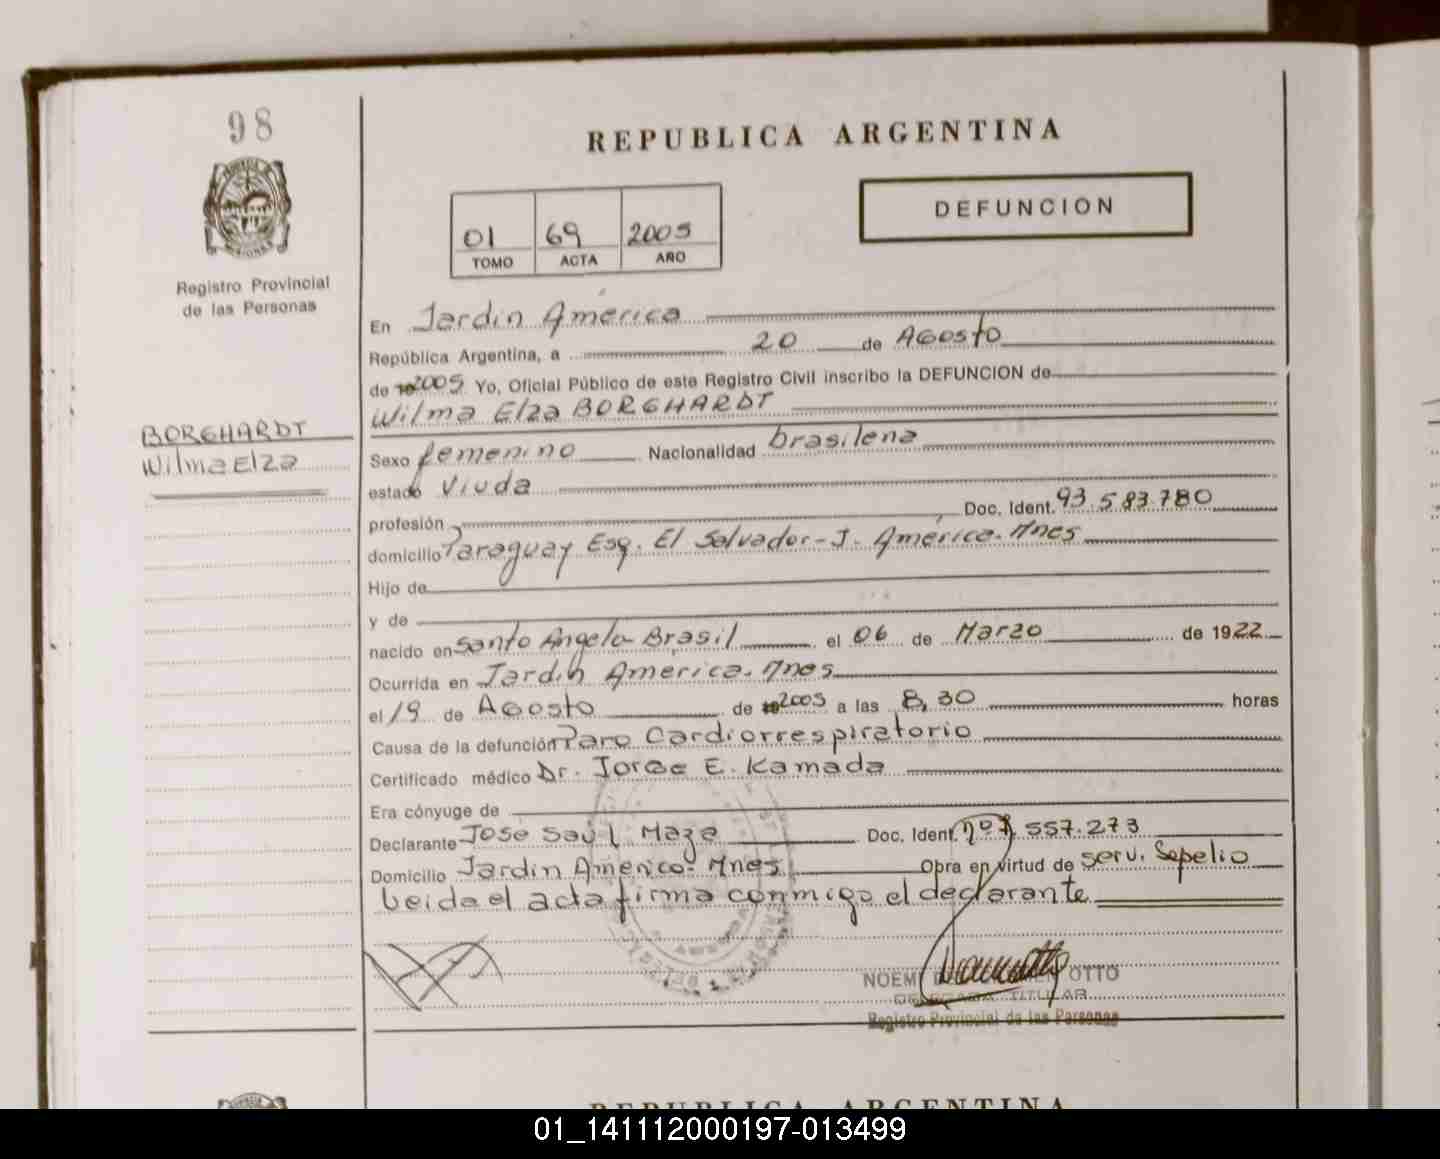 98
REPUBLICA ARGENTINA
DEFUNCION
01 69 2005
TOMO ACTA AÑO
Registro Provincial
de las Personas
En Jardín América
República Argentina, a 20 de Agosto
de 2005 Yo, Oficial Público de este Registro Civil inscribo la DEFUNCION de
Wilma Elza BORGHARDT
BORGHARDT
Wilma Elza
Sexo femenino Nacionalidad brasilena
estado Viuda
profesión Doc. Ident. 93.583.780
domicilio Paraguay Esq. El Salvador-J. América-Mnes
Hijo de
y de
nacido en Santo Angelo-Brasil el 06 de Marzo de 1922
Ocurrida en Jardín América-Mnes
el 19 de Agosto de 2005 a las 8,30 horas
Causa de la defunción Paro Cardiorrespiratorio
Certificado médico Dr. Jorge E. Kamada
Era cónyuge de
Declarante Jose Saul Maza Doc. Ident. 557.273
Domicilio Jardín América-Mnes Obra en virtud de serv. Sepelio
Leida el acta firma conmigo el declarante
NOEMI OTTO
TITULAR
Registro Provincial de las Personas
REPUBLICA ARGENTINA
01_141112000197-013499